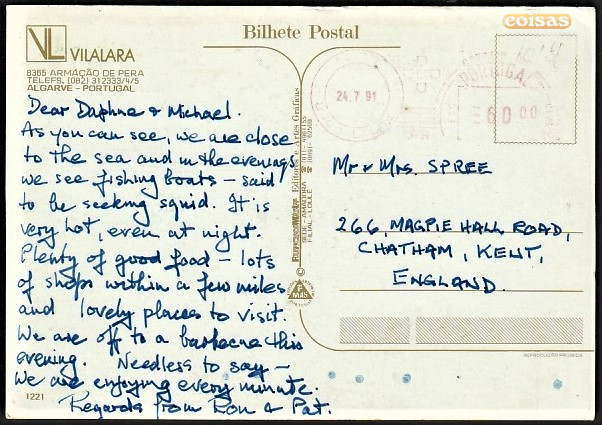 coisas
Bilhete Postal
VL VILALARA
8365 ARMAÇÃO DE PERA
TELEFS. (082) 312333/4/5
ALGARVE - PORTUGAL
Dear Daphne & Michael.
As you can see, we are close
to the sea and in the evenings
we see fishing boats – said
to be seeking squid. It is
very hot, even at night.
Plenty of good food – lots
of shops within a few miles
and lovely places to visit.
We are off to a barbecue this
evening. Needless to say –
We are enjoying every minute.
Regards from Ron & Pat.
1221
Editores e Artes Gráficas
SEDE - AMADORA
FILIAL - LOULÉ
24.7.91
PORTUGAL
60.00
Mr & Mrs. SPREE
266, MAGPIE HALL ROAD,
CHATHAM, KENT,
ENGLAND.
REPRODUÇÃO PROIBIDA